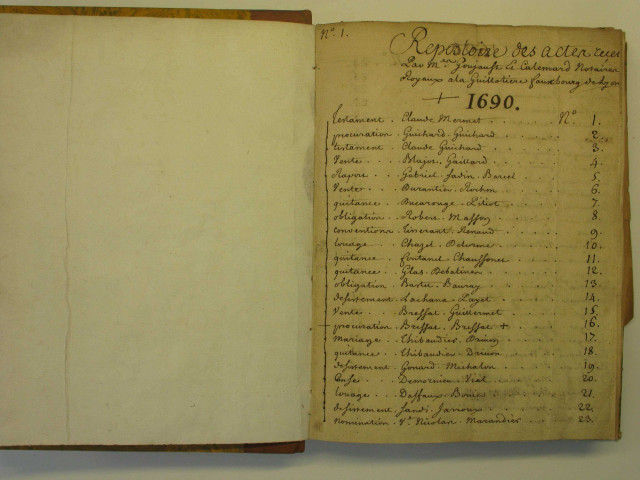 N° 1.
Repertoire des actes recus
Par Mrs Goujauft Et Catemard Notaires
Royeux ala Guillotiere fauxbourg de Lyon
1690.
testament . Claude Mermet . . . . . . N° 1.
procuration . Guichard . Guichard . . . . 2.
testament . Claude Guichard . . . . 3.
Vente . . . Gaillard . . . . 4.
Raport . . Gabriel . Jadin . . . . . 5.
Vente . . . Durantier . . . . . 6.
quitance . . . . . . 7.
obligation . Robert . . . . . 8.
conventions . Renaud . . . . 9.
louage . . Chazel . Delorme . . . . 10.
quitance . fontanel Chauffonet . . . . 11.
quitance . Glas . . . . . 12.
obligation . . . . . 13.
desistement . Lachana . . . . . 14.
Vente . . . Bressat . Guillermet . . . . 15.
procuration . Bressat . Bressat + . . . . 16.
Mariage . . Thibaudier . . . . . 17.
quitance . . Thibaudier . . . . . 18.
desistement . Gonard . Michalon . . . . 19.
. . . Vial . . . . 20.
louage . . . . . . 21.
desistement . Jandi . Jarroux . . . . 22.
Nomination . Ve. Nicolas . Marandier . . . 23.